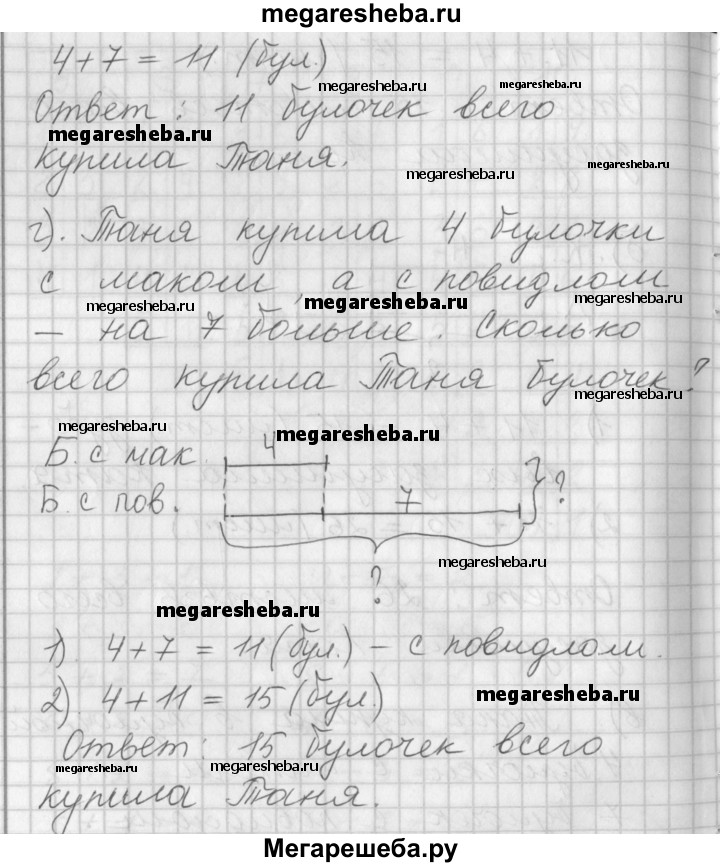 megaresheba.ru
4 + 7 = 11 (бул.)
megaresheba.ru megaresheba.ru
Ответ: 11 булочек всего
megaresheba.ru
купила Таня.
megaresheba.ru megaresheba.ru
г). Таня купила 4 булочки
с маком, а с повидлом
megaresheba.ru megaresheba.ru megaresheba.ru
— на 7 больше. Сколько
всего купила Таня булочек?
megaresheba.ru
megaresheba.ru megaresheba.ru
Б. с мак. 4
Б. с пов. 7 ?
megaresheba.ru
?
megaresheba.ru
1). 4 + 7 = 11 (бул.) – с повидлом.
2). 4 + 11 = 15 (бул.)
megaresheba.ru
Ответ: 15 булочек всего
megaresheba.ru megaresheba.ru megaresheba.ru
купила Таня.
Мегарешеба.ру